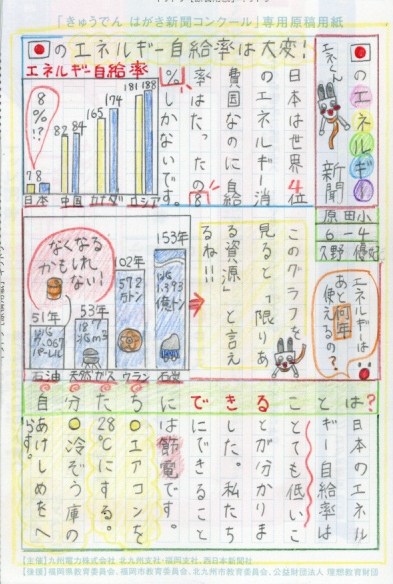 「きゅうでん はがき新聞コンクール」専用原稿用紙
🇯🇵のエネルギー自給率は大変!
🇯🇵のエネルギー新聞
エネくん
原田小
6-4
エネルギー自給率
8%!?
7 8
82 84
165 174
181 188
日本 中国 カナダ ロシア
日本は世界4位
のエネルギー消
費国なのに自給
率はたったの8
%しかないです。
エネルギーは
あと何年
使えるの?
このグラフを
見ると「限りあ
る資源」と言え
るね!!
なくなる
かもしれ
ない!
51年
53年
102年
153年
572
万トン
石油 天然ガス ウラン 石炭
自分たちにできることは?
日本のエネル
ギー自給率は
とても低いこ
とが分かりま
した。私たち
にできること
は節電です。
●エアコンを
28℃にする。
●冷ぞう庫の
あけしめをへ
らす。
【主催】九州電力株式会社 北九州支社・福岡支社、西日本新聞社
【後援】福岡県教育委員会、福岡市教育委員会、北九州市教育委員会、公益財団法人 理想教育財団